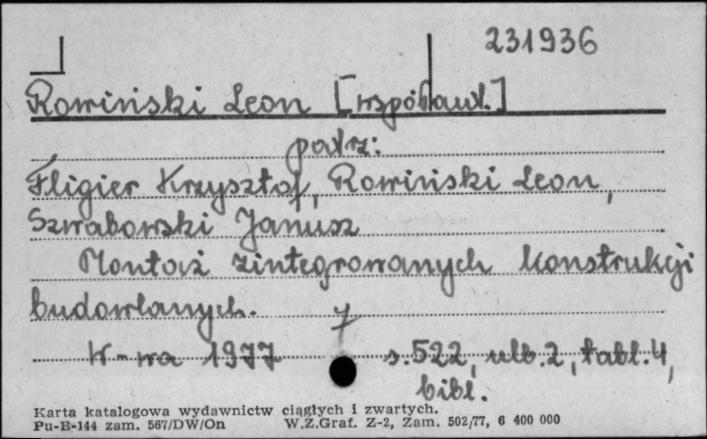 231936
Rowiński Leon [współaut.]
patrz:
Fligier Krzysztof, Rowiński Leon,
Szwabowski Janusz
Montaż zintegrowanych konstrukcji
budowlanych.
W-wa 1977 s. 522, nlb. 2, tabl. 4,
bibl.
Karta katalogowa wydawnictw ciągłych i zwartych.
Pu-B-144 zam. 567/DW/On W.Z.Graf. Z-2, Zam. 502/77, 6 400 000